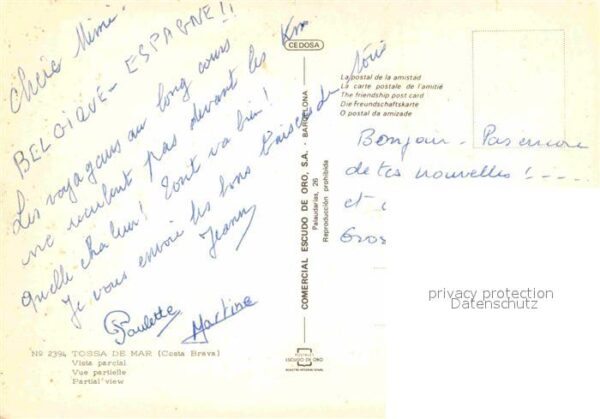 Chère Mimi.
BELGIQUE - ESPAGNE !!
Les voyageurs au long cours
ne reculent pas devant les Km
Quelle chaleur! Tout va bien!
Je vous envoie les bons baisers de tous
Jeanny
Paulette Martine
Nº 2394 TOSSA DE MAR (Costa Brava)
Vista parcial
Vue partielle
Partial view
CEDOSA
COMERCIAL ESCUDO DE ORO, S.A. - BARCELONA -
Palaudarias, 26
Reproducción prohibida
POSTALES
ESCUDO DE ORO
La postal de la amistad
La carte postale de l'amitié
The friendship post card
Die Freundschaftskarte
O postal da amizade
Bonjour - Pas encore
de tes nouvelles! ----
et
Gros
privacy protection
Datenschutz